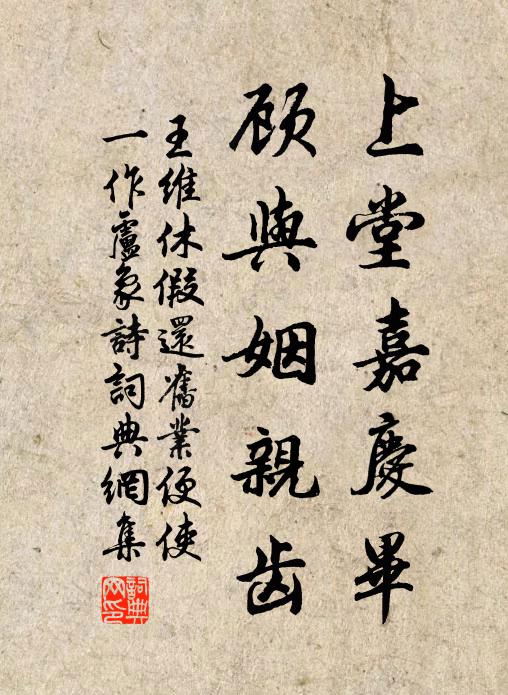 上堂嘉慶畢
顾與姻親齿
王維休假還舊業便使
一作盧象詩詞典網集
詞典
网印